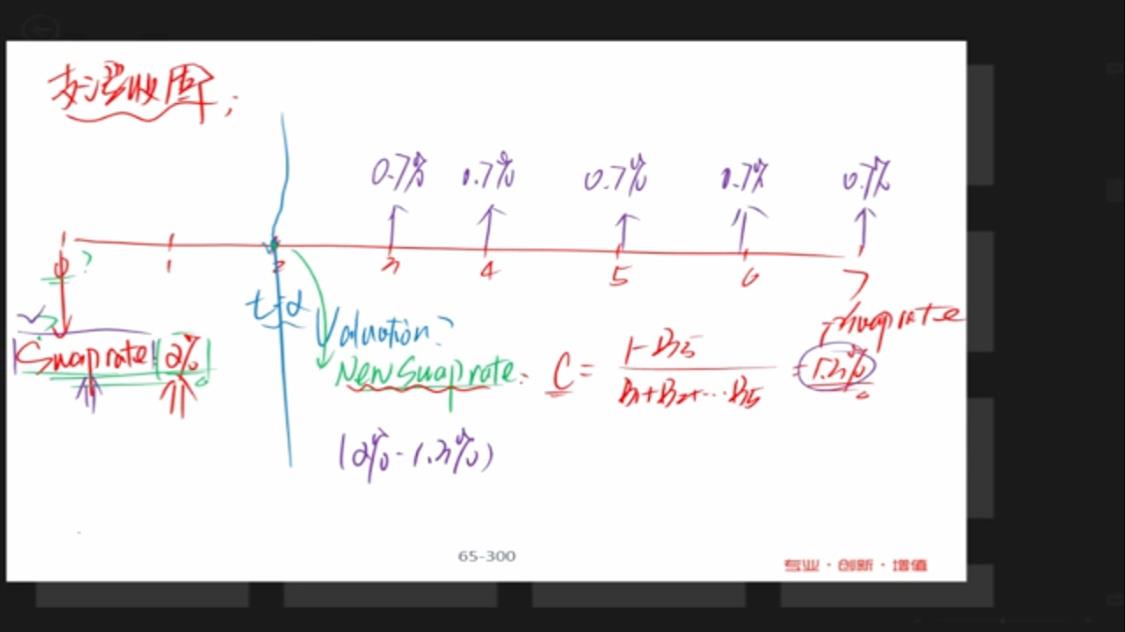 支浮收固;
0.7% 0.7% 0.7% 0.7% 0.7%
0 ? 1 2 3 4 5 6 7
t=2
Valuation?
Swap rate (2%)
New Swap rate: C = 1-B5 / B1+B2+...B5 = 1.3%
Swap rate
(2% - 1.3%)
65-300
专业·创新·增值